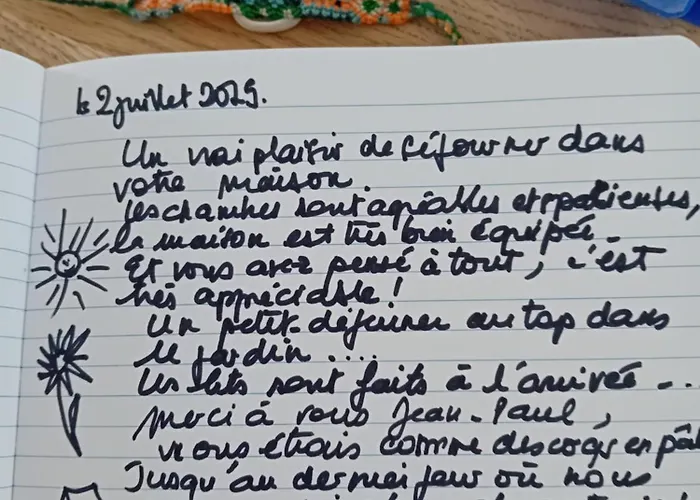 le 2 juillet 2025.
Un vrai plaisir de séjourner dans
votre maison.
les chambres sont agréables et spatieuses,
la maison est très bien équipée.
Et vous avez pensé à tout, c'est
très appréciable !
Un petit-déjeuner au top dans
le jardin ....
Les lits sont faits à l'arrivée ..
merci à vous Jean-Paul,
nous étions comme des coqs en pâ
Jusqu'au dernier jour où nous